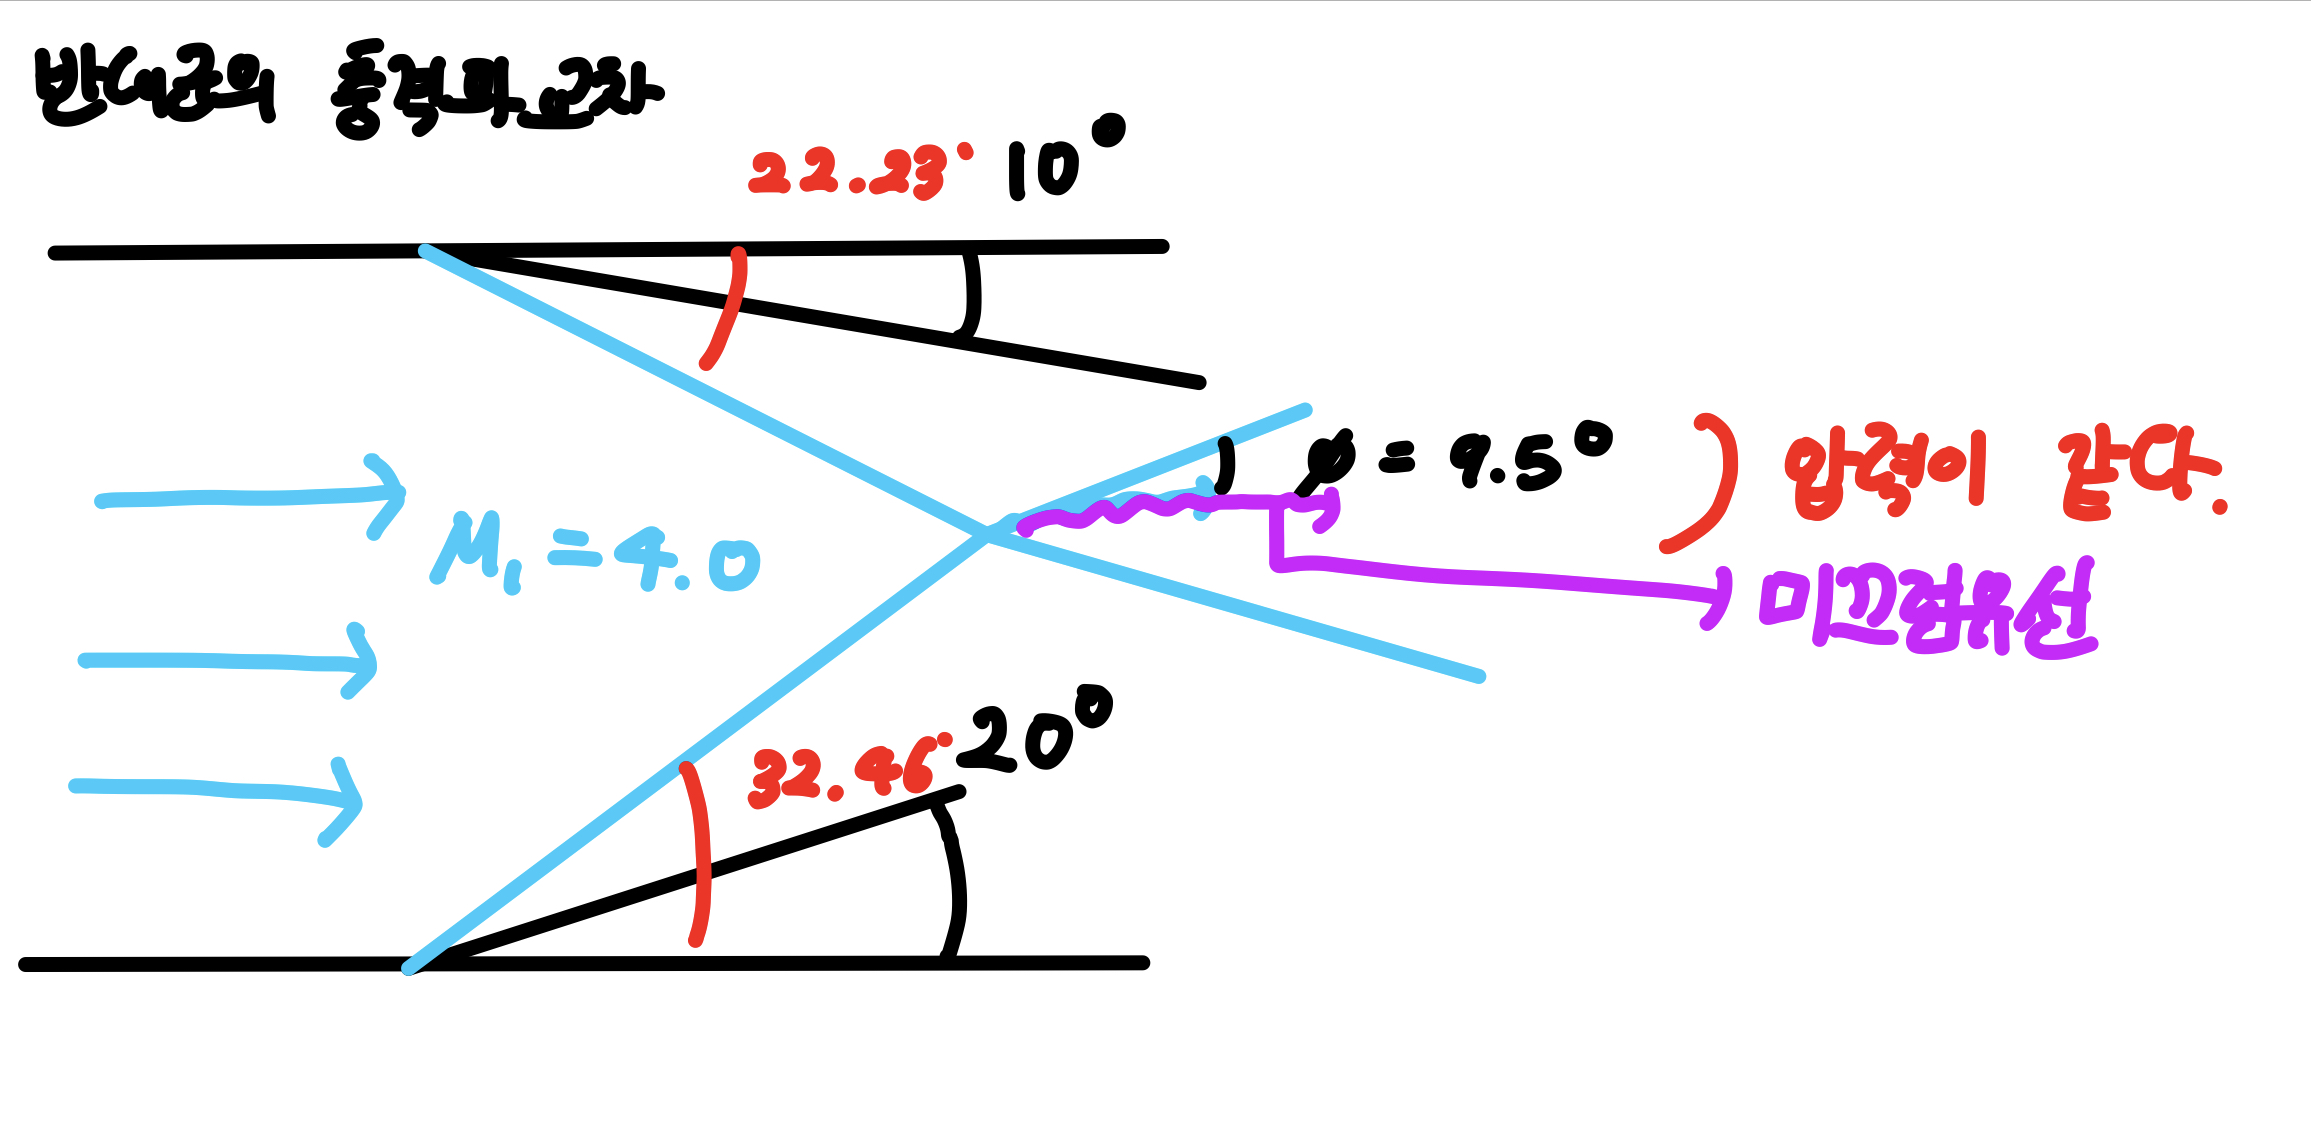 반대군의 충격파 교차
22.23° 10°
M₁ = 4.0
φ = 9.5°
압력이 같다.
미끄럼유선
32.46° 20°